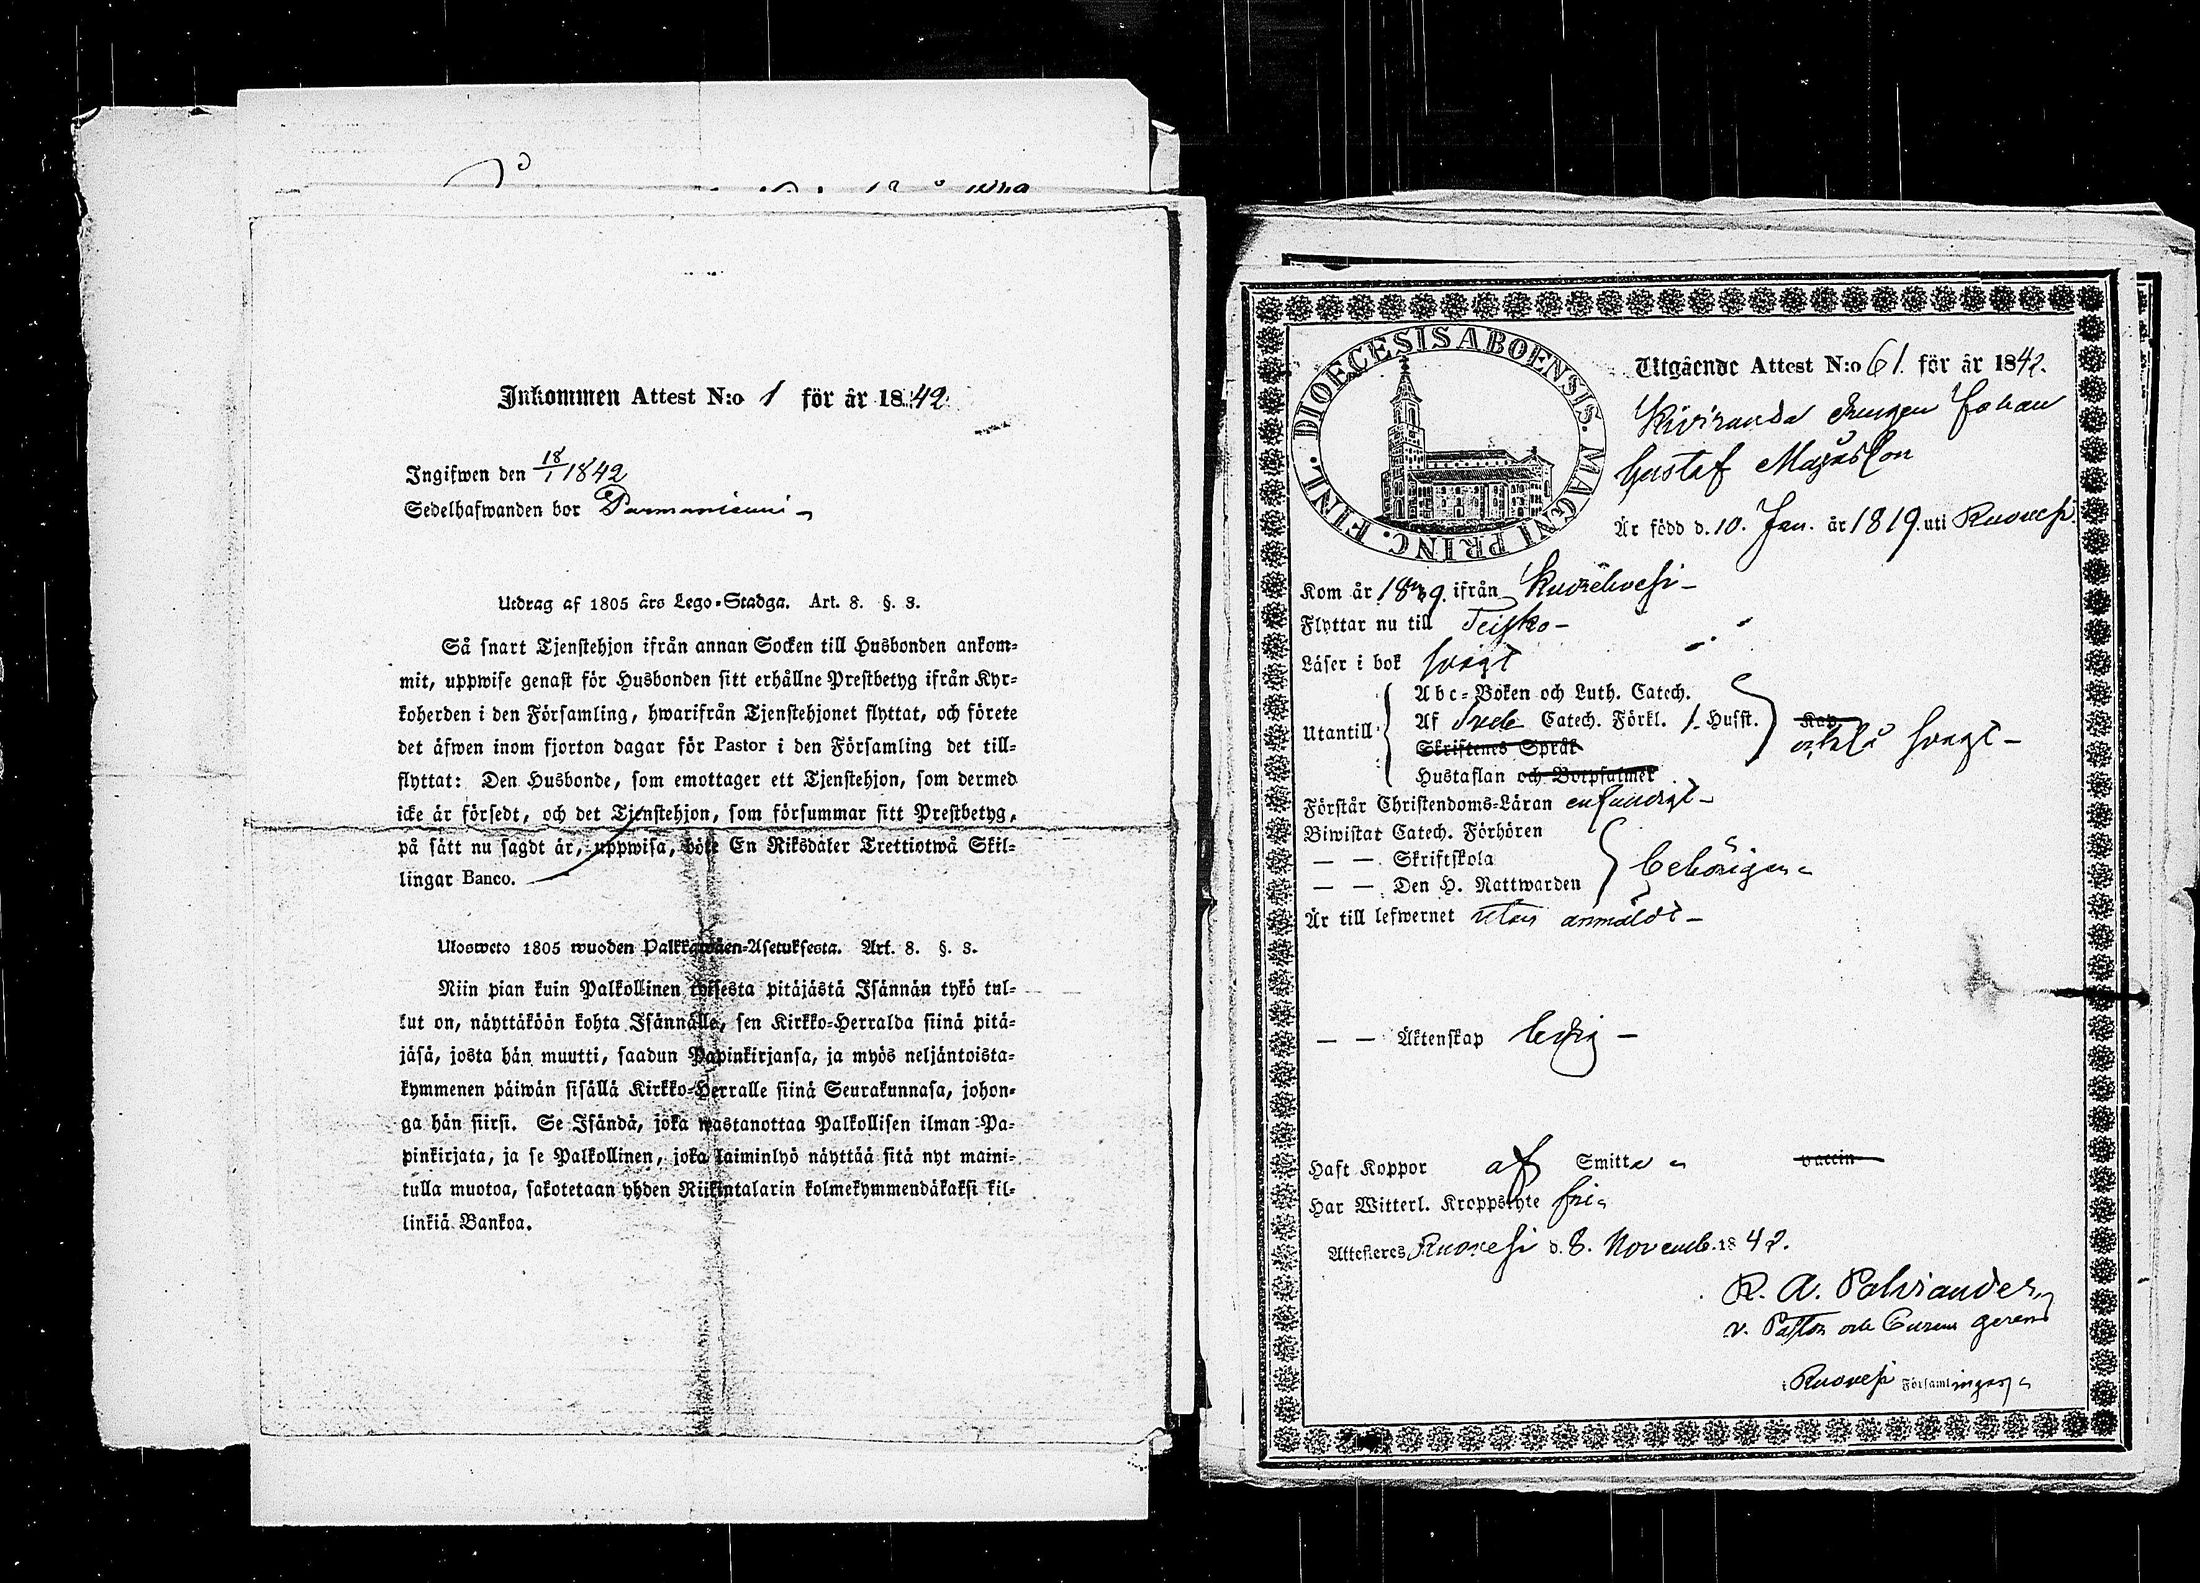 Inkommen Attest N:o 1 för år 1842
Ingifwen den 18/1 1842
Sedelhafwanden bor
Utdrag af 1805 års Lego-Stadga. Art. 8. §. 3.
Så snart Tjenstehjon ifrån annan Socken till Husbonden ankom-
mit, uppwise genast för Husbonden sitt erhållne Prestbetyg ifrån Kyr-
koherden i den Församling, hwarifrån Tjenstehjonet flyttat, och förete
det äfwen inom fjorton dagar för Pastor i den Församling det till-
flyttat: Den Husbonde, som emottager ett Tjenstehjon, som dermed
icke är försedt, och det Tjenstehjon, som försummar sitt Prestbetyg,
på sätt nu sagdt är, uppwisa, böte En Riksdaler Trettiotwå Skil-
lingar Banco.
Ulosweto 1805 wuoden Palkkawäen-Asetuksesta. Art. 8. §. 3.
Niin pian kuin Palkollinen toisesta pitäjästä Isännän tykö tul-
lut on, näyttäköön kohta Isännälle, sen Kirkko-Herralda siinä pitä-
jäsä, josta hän muutti, saadun Papinkirjansa, ja myös neljäntoista-
kymmenen päiwän sisällä Kirkko-Herralle siinä Seurakunnasa, johon-
ga hän siirsi. Se Isändä, joka wastanottaa Palkollisen ilman Pa-
pinkirjata, ja se Palkollinen, joka laiminlyö näyttää sitä nyt maini-
tulla muotoa, sakotetaan yhden Riikintalarin kolmekymmendäkaksi kil-
linkiä Bankoa.
DIOECESIS ABOENSIS. MAGNI PRINC. FINL.
Utgående Attest N:o 61. för år 1842.
Drängen Johan
Gustaf Matsson
Är född d. 10. Jan. år 1819. uti Ruovesi.
Kom år 1839. ifrån Kuorehvesi
Flyttar nu till Teisko
Läser i bok svagt
Utantill
Abc-Boken och Luth. Catech.
Af Sveb. Catech. Förkl. 1. Husst.
Skriftenes Språk
Hustaflan och Botpsalmer
också svagt
Förstår Christendoms-Läran enfaldigt
Biwistat Catech. Förhören
— — Skriftskola
— — Den H. Nattwarden
behörigen
Är till lefwernet utan anmäldt
— — Äktenskap ledig
Haft Koppor af Smitta vaccin
Har Witterl. Kroppslyte fri
Attesteres Ruovesi d. 8. Novemb. 1842.
R. A. Palsander
v. Pastor och Curam gerens
i Ruovesi Församling